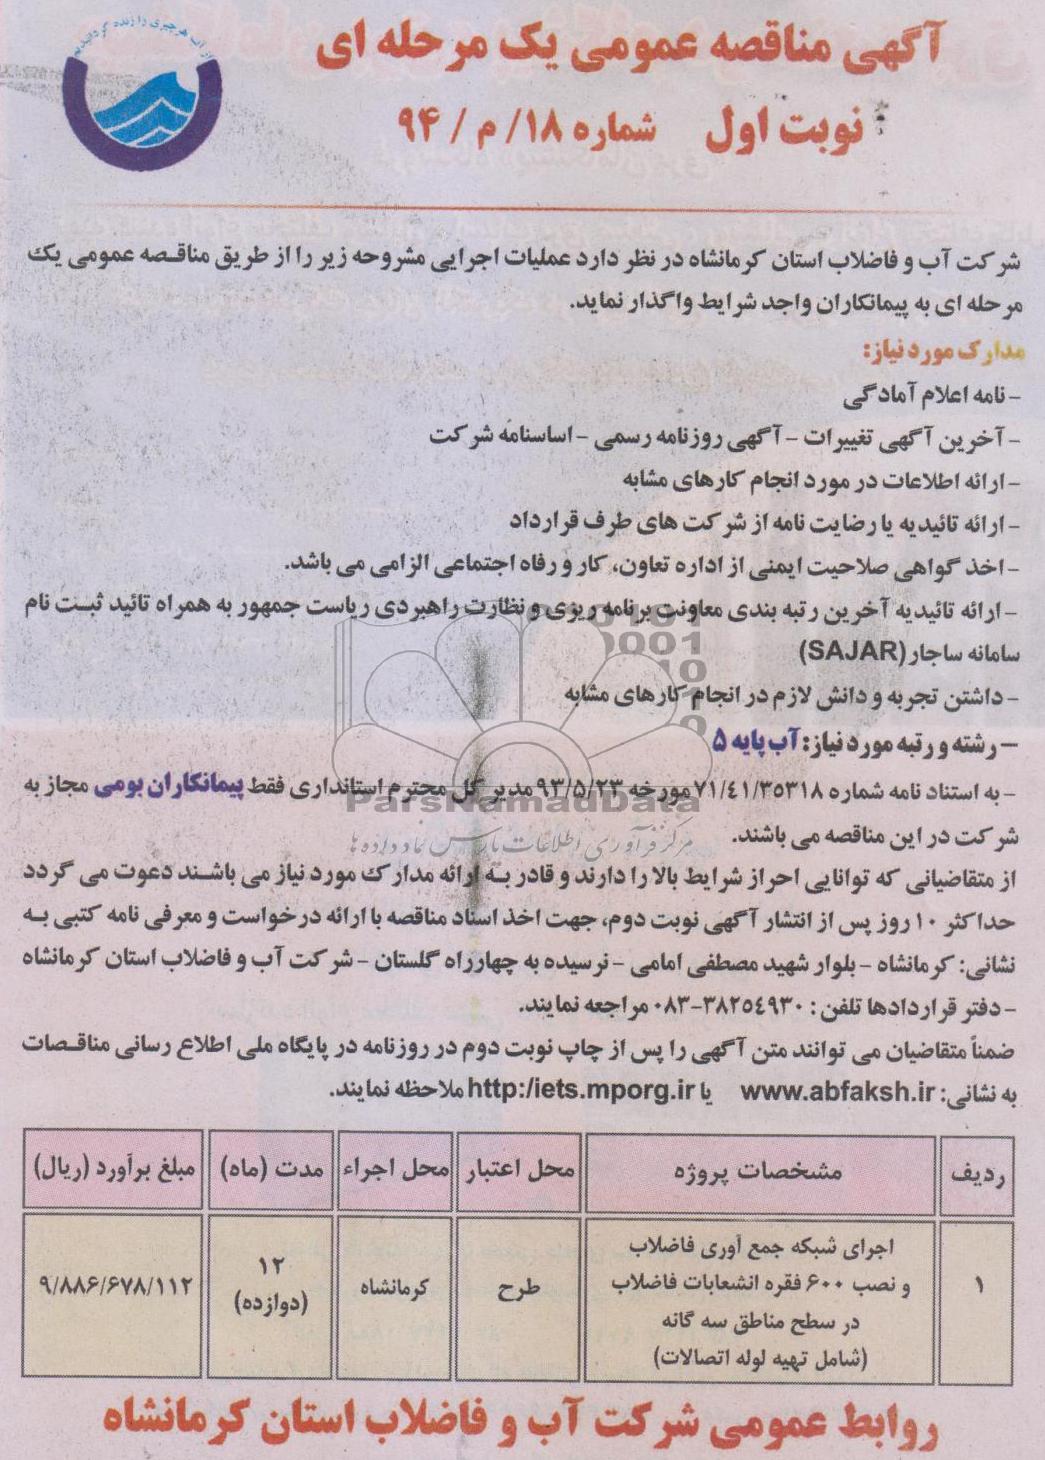 از آب هر چیزی را زنده گردانیدیم
آگهی مناقصه عمومی یک مرحله ای
نوبت اول شماره ۱۸/ م / ۹۴
شرکت آب و فاضلاب استان کرمانشاه در نظر دارد عملیات اجرایی مشروحه زیر را از طریق مناقصه عمومی یک
مرحله ای به پیمانکاران واجد شرایط واگذار نماید.
مدارک مورد نیاز:
- نامه اعلام آمادگی
- آخرین آگهی تغییرات - آگهی روزنامه رسمی - اساسنامه شرکت
- ارائه اطلاعات در مورد انجام کارهای مشابه
- ارائه تائیدیه یا رضایت نامه از شرکت های طرف قرارداد
- اخذ گواهی صلاحیت ایمنی از اداره تعاون، کار و رفاه اجتماعی الزامی می باشد.
- ارائه تائیدیه آخرین رتبه بندی معاونت برنامه ریزی و نظارت راهبردی ریاست جمهور به همراه تائید ثبت نام
سامانه ساجار (SAJAR)
- داشتن تجربه و دانش لازم در انجام کارهای مشابه
- رشته و رتبه مورد نیاز: آب پایه ۵
- به استناد نامه شماره ۷۱/۴۱/۳۵۳۱۸ مورخه ۹۳/۵/۲۳ مدیر کل محترم استانداری فقط پیمانکاران بومی مجاز به
شرکت در این مناقصه می باشند.
ParsNamadData
مرکز فرآوری اطلاعات پارس نماد داده ها
از متقاضیانی که توانایی احراز شرایط بالا را دارند و قادر به ارائه مدارک مورد نیاز می باشند دعوت می گردد
حداکثر ۱۰ روز پس از انتشار آگهی نوبت دوم، جهت اخذ اسناد مناقصه با ارائه درخواست و معرفی نامه کتبی به
نشانی: کرمانشاه - بلوار شهید مصطفی امامی - نرسیده به چهارراه گلستان - شرکت آب و فاضلاب استان کرمانشاه
- دفتر قراردادها تلفن : ۳۸۲۵۴۹۳۰-۰۸۳ مراجعه نمایند.
ضمناً متقاضیان می توانند متن آگهی را پس از چاپ نوبت دوم در روزنامه در پایگاه ملی اطلاع رسانی مناقصات
به نشانی: www.abfaksh.ir یا http:/iets.mporg.ir ملاحظه نمایند.
ردیف مشخصات پروژه محل اعتبار محل اجراء مدت (ماه) مبلغ برآورد (ریال)
۱
اجرای شبکه جمع آوری فاضلاب
و نصب ۶۰۰ فقره انشعابات فاضلاب
در سطح مناطق سه گانه
(شامل تهیه لوله اتصالات)
طرح
کرمانشاه
۱۲
(دوازده)
۹/۸۸۶/۶۷۸/۱۱۲
روابط عمومی شرکت آب و فاضلاب استان کرمانشاه